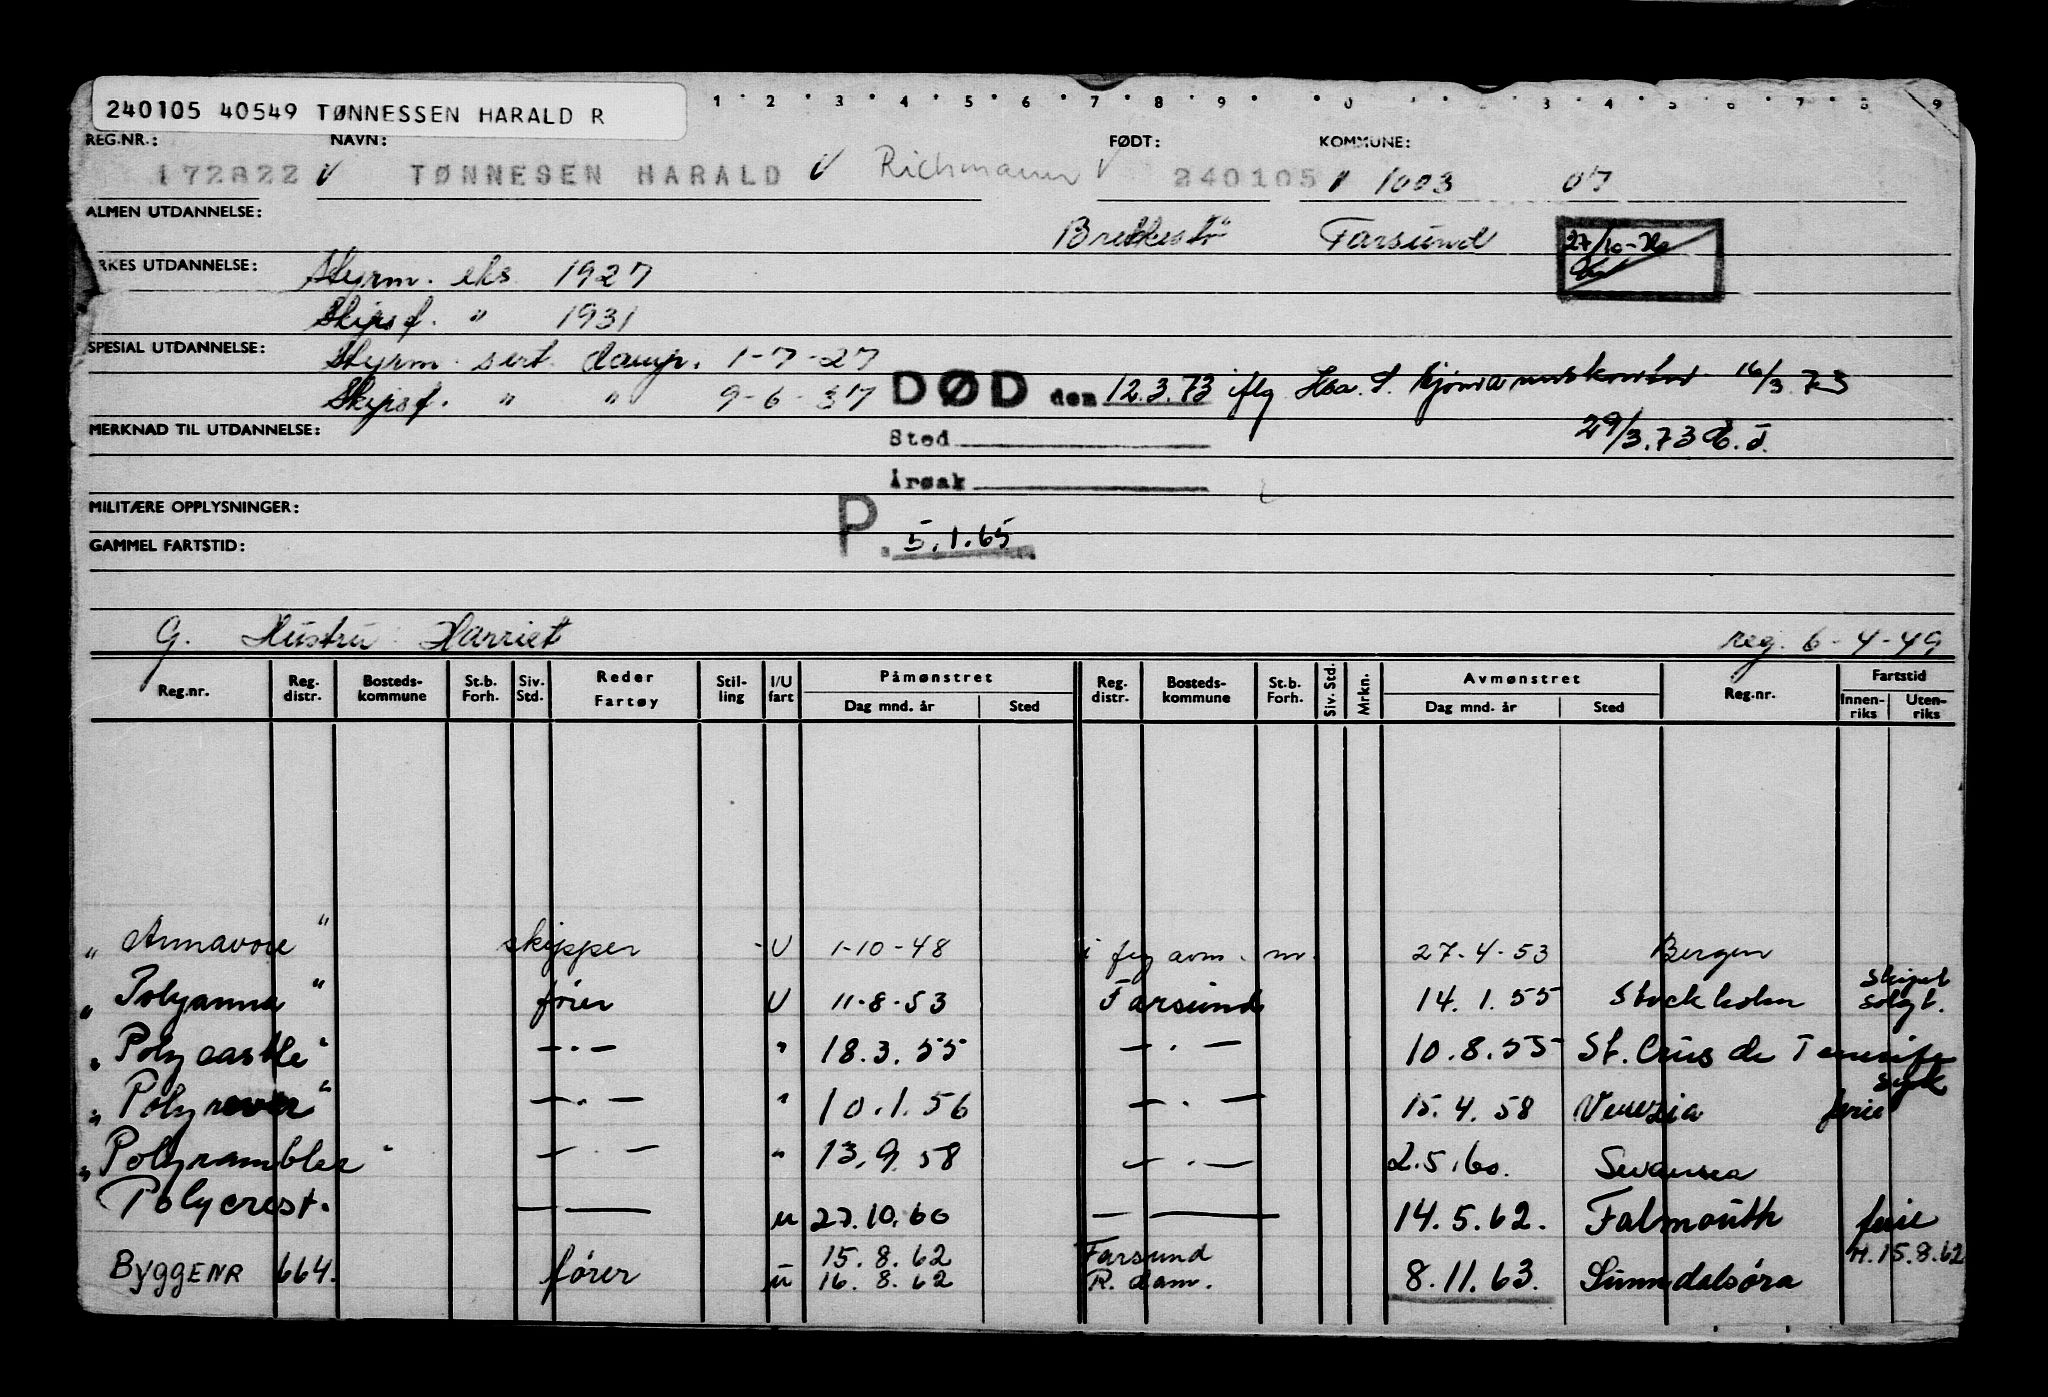 240105 40549 TØNNESSEN HARALD R
1 2 3 4 5 6 7 8 9 0 3 4 5 6 7 8 9
REG.NR.: NAVN: FØDT: KOMMUNE:
172822 TØNNESEN HARALD Richmann 240105 1003 07
ALMEN UTDANNELSE: Brekkestø Farsund 27/10-
RKES UTDANNELSE: Styrm. eks 1927
Skipsf. " 1931
SPESIAL UTDANNELSE: Styrm. sert. damp. 1-7-27
Skipsf. " " 9-6-37 DØD den 12.3.73 iflg 16/3.73
MERKNAD TIL UTDANNELSE: Sted 29/3.73
Årsak
MILITÆRE OPPLYSNINGER:
P. 5.1.65
GAMMEL FARTSTID:
G. Hustru Harriet reg. 6-4-49
Reg.nr. Reg. distr. Bosteds- kommune St.b. Forh. Siv. Std. Reder Fartøy Stil- ling I/U fart Påmønstret Dag mnd. år Sted Reg. distr. Bosteds- kommune St.b. Forh. Siv. Std. Mrkn. Avmønstret Dag mnd. år Sted Reg.nr. Fartstid Innen- riks Uten- riks
" Annavore " skipper -U 1-10-48 i flg avm. m. 27.4-53 Bergen
" Polyanna " fører U 11-8-53 Farsund 14.1.55 Stockholm Skipet solgt.
" Polycastle " —.— " 18.3.55 —.— 10.8.55 St. Crus de Tenerife syk
" Polyrover " —.— " 10.1.56 —.— 15.4.58 Venezia ferie
" Polyrambler " —.— " 13.9.58 —.— 2.5.60. Swansea
Polycrest. — — u 27.10.60 — — 14.5.62. Falmouth ferie
15.8.62 Farsund H.15.8.62
Byggenr 664. fører u 16.8.62 R.dam. 8.11.63. Sunndalsøra